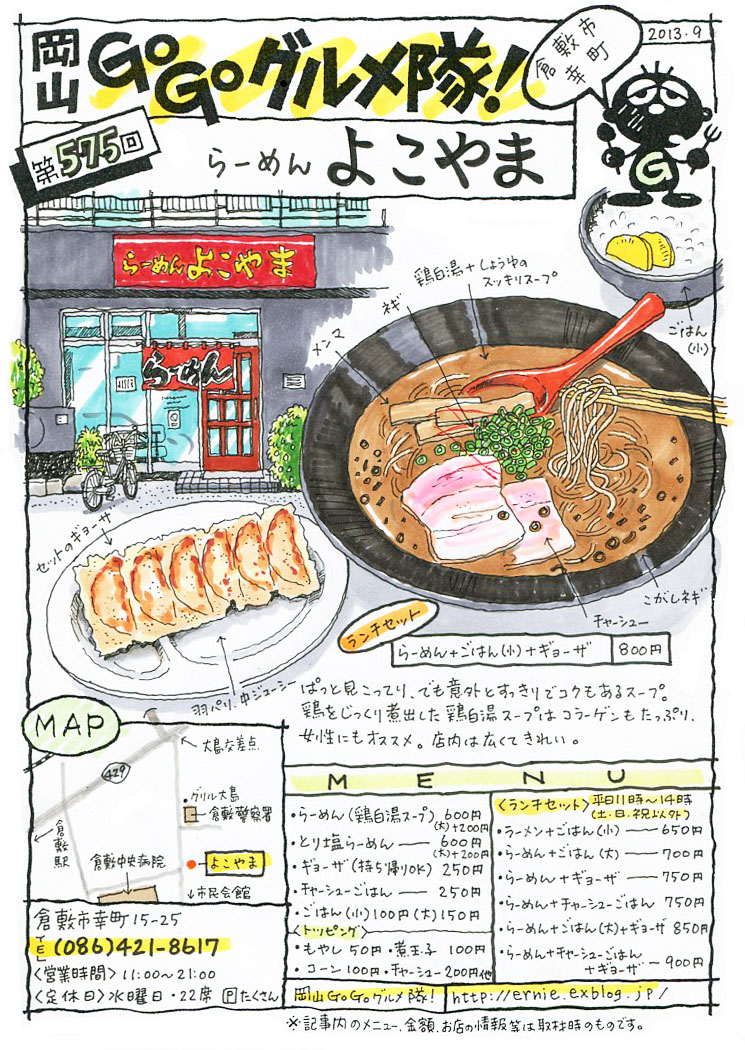 岡山GoGoグルメ隊!
倉敷市
幸町
2013.9
第575回
らーめん よこやま
G
らーめん よこやま
らーめん
鶏白湯+しょうゆの
スッキリスープ
ネギ
メンマ
ごはん
(小)
セットのギョーザ
こがしネギ
チャーシュー
羽パリ、中ジューシー
ランチセット
らーめん+ごはん(小)+ギョーザ 800円
ぱっと見こってり、でも意外とすっきりでコクもあるスープ。
鶏をじっくり煮出した鶏白湯スープはコラーゲンもたっぷり、
女性にもオススメ。店内は広くてきれい。
MAP
大島交差点
429
・グリル大島
倉敷警察署
倉敷駅
倉敷中央病院
よこやま
↓市民会館
倉敷市幸町15-25
TEL(086)421-8617
<営業時間>11:00~21:00
<定休日>水曜日・22席 Pたくさん
MENU
・らーめん(鶏白湯スープ) 600円
(大)+200円
・とり塩らーめん — 600円
(大)+200円
・ギョーザ(持ち帰りOK) 250円
・チャーシューごはん — 250円
・ごはん(小)100円(大)150円
<トッピング>
・もやし 50円・煮玉子 100円
・コーン 100円・チャーシュー200円他
<ランチセット>平日11時~14時
(土・日・祝以外)
・ラーメン+ごはん(小) — 650円
・らーめん+ごはん(大) — 700円
・らーめん+ギョーザ — 750円
・らーめん+チャーシューごはん 750円
・らーめん+ごはん(大)+ギョーザ 850円
・らーめん+チャーシューごはん
+ギョーザ — 900円
岡山GoGoグルメ隊! http://ernie.exblog.jp/
※記事内のメニュー、金額、お店の情報等は取材時のものです。